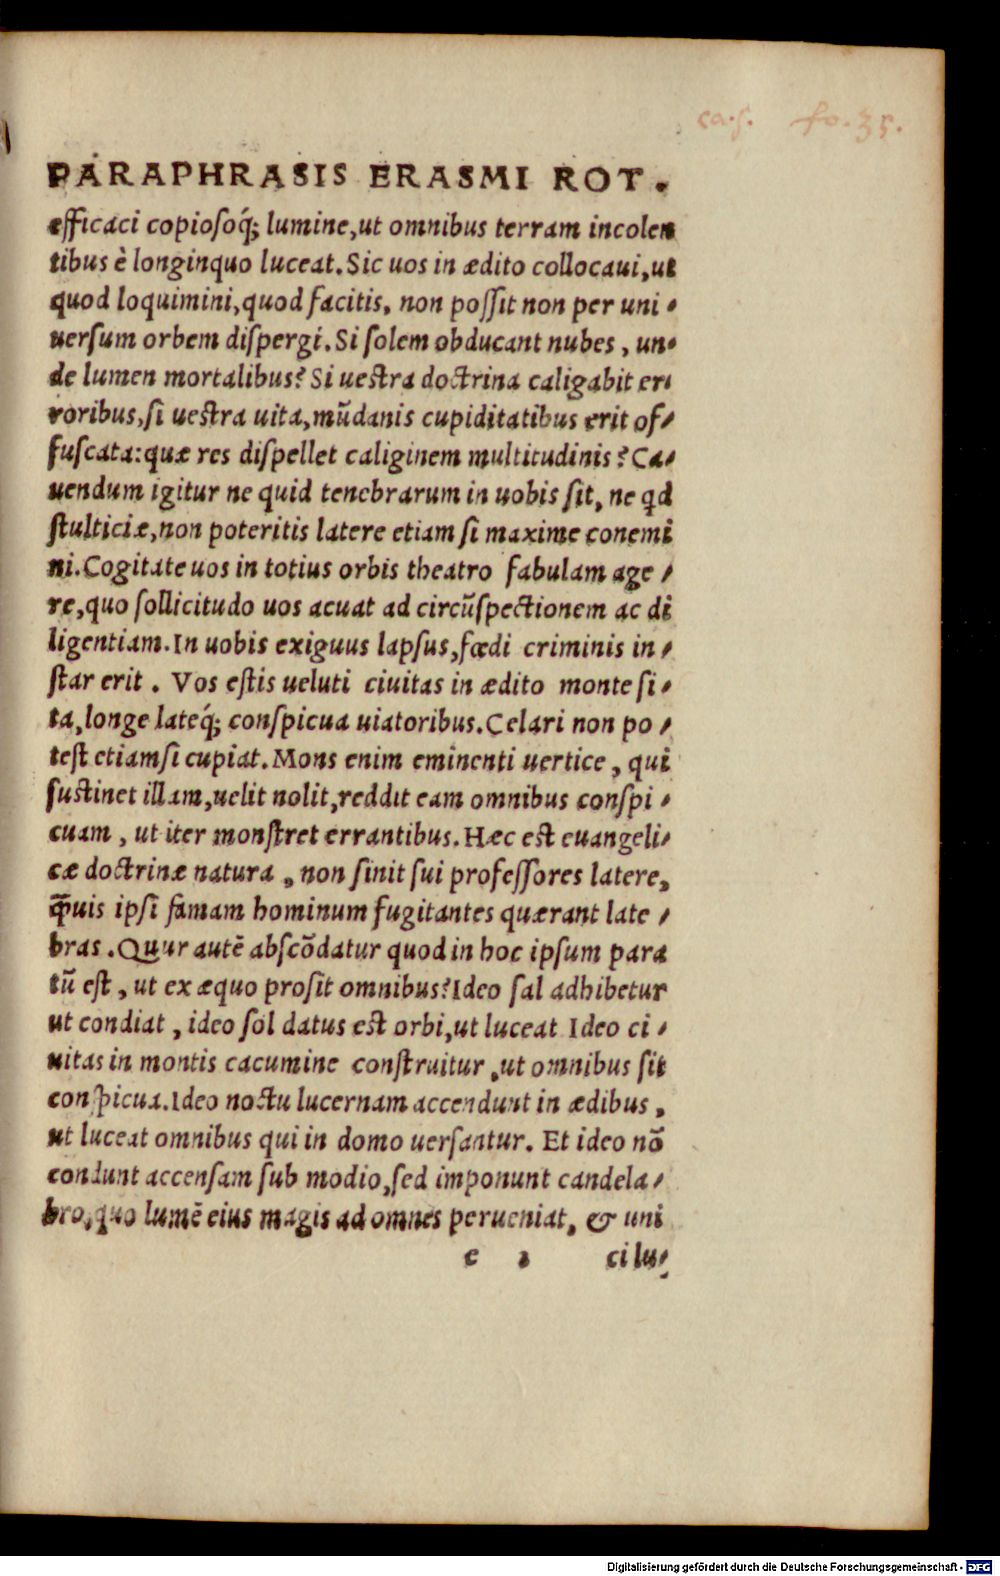 ca.5. fo.35.
PARAPHRASIS ERASMI ROT.
efficaci copioſoq́; lumine,ut omnibus terram incolen
tibus è longinquo luceat.Sic uos in ædito collocaui,ut
quod loquimini,quod facitis, non poſſit non per uni-
uerſum orbem diſpergi.Si ſolem obducant nubes, un-
de lumen mortalibus? Si ueſtra doctrina caligabit er-
roribus,ſi ueſtra uita,mũdanis cupiditatibus erit of-
fuſcata:quæ res diſpellet caliginem multitudinis? Ca-
uendum igitur ne quid tenebrarum in uobis ſit, ne qd
ſtulticiæ,non poteritis latere etiam ſi maxime conemi
ni.Cogitate uos in totius orbis theatro fabulam age-
re,quo ſollicitudo uos acuat ad circũſpectionem ac di
ligentiam.In uobis exiguus lapſus,fœdi criminis in-
ſtar erit. Vos eſtis ueluti ciuitas in ædito monte ſi-
ta,longe lateq́; conſpicua uiatoribus.Celari non po-
teſt etiamſi cupiat.Mons enim eminenti uertice, qui
ſuſtinet illam,uelit nolit,reddit eam omnibus conſpi-
cuam, ut iter monſtret errantibus.Hæc eſt euangeli-
cæ doctrinæ natura, non ſinit ſui profeſſores latere,
q̃uis ipſi famam hominum fugitantes quærant late-
bras.Quur autẽ abſcõdatur quod in hoc ipſum para
tũ eſt, ut ex æquo proſit omnibus?Ideo ſal adhibetur
ut condiat, ideo ſol datus eſt orbi,ut luceat Ideo ci-
uitas in montis cacumine conſtruitur,ut omnibus ſit
conſpicua.Ideo noctu lucernam accendunt in ædibus,
ut luceat omnibus qui in domo uerſantur. Et ideo nõ
condunt accenſam ſub modio,ſed imponunt candela-
bro,quo lumẽ eius magis ad omnes perueniat, & uni
e 2 ci lu-
Digitalisierung gefördert durch die Deutsche Forschungsgemeinschaft - DFG